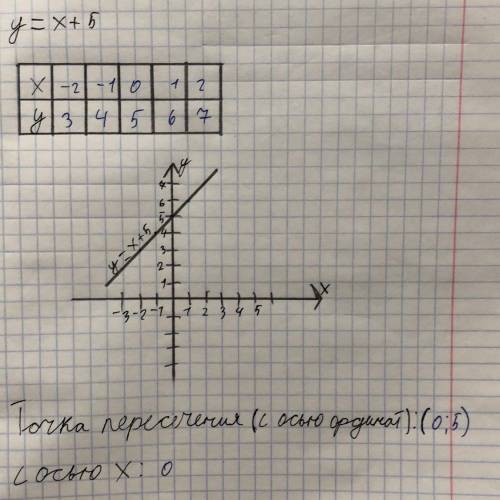 y = x + 5
x -2 -1 0 1 2
y 3 4 5 6 7
y
7
6
5
4
3
2
1
y = x + 5
x
-3 -2 -1 1 2 3 4 5
Точка пересечения (с осью ординат): (0;5)
с осью x: 0